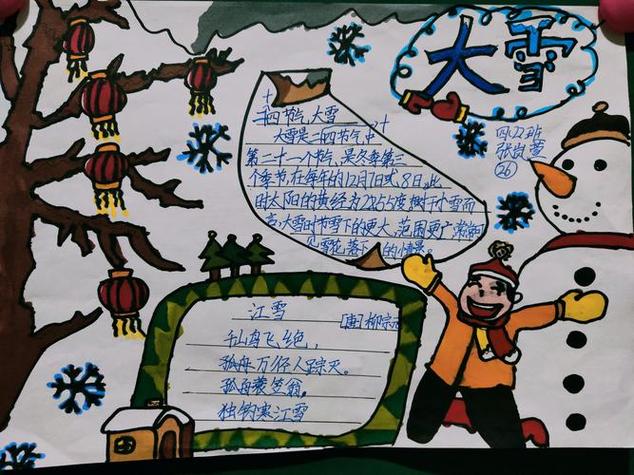 大雪
四(2)班
张岚萱
26
二十四节气,大雪
大雪是二十四节气中
第二十一个节气,是冬季第三
个季节,在每年的12月7日或8日,此
时太阳的黄经为255度,相于小雪而
言,大雪时节雪下的更大,范围更广,
见雪花落下的情景。
江雪
[唐]柳宗元
千山鸟飞绝,
孤舟万仔人踪灭。
孤舟蓑笠翁。
独钓寒江雪